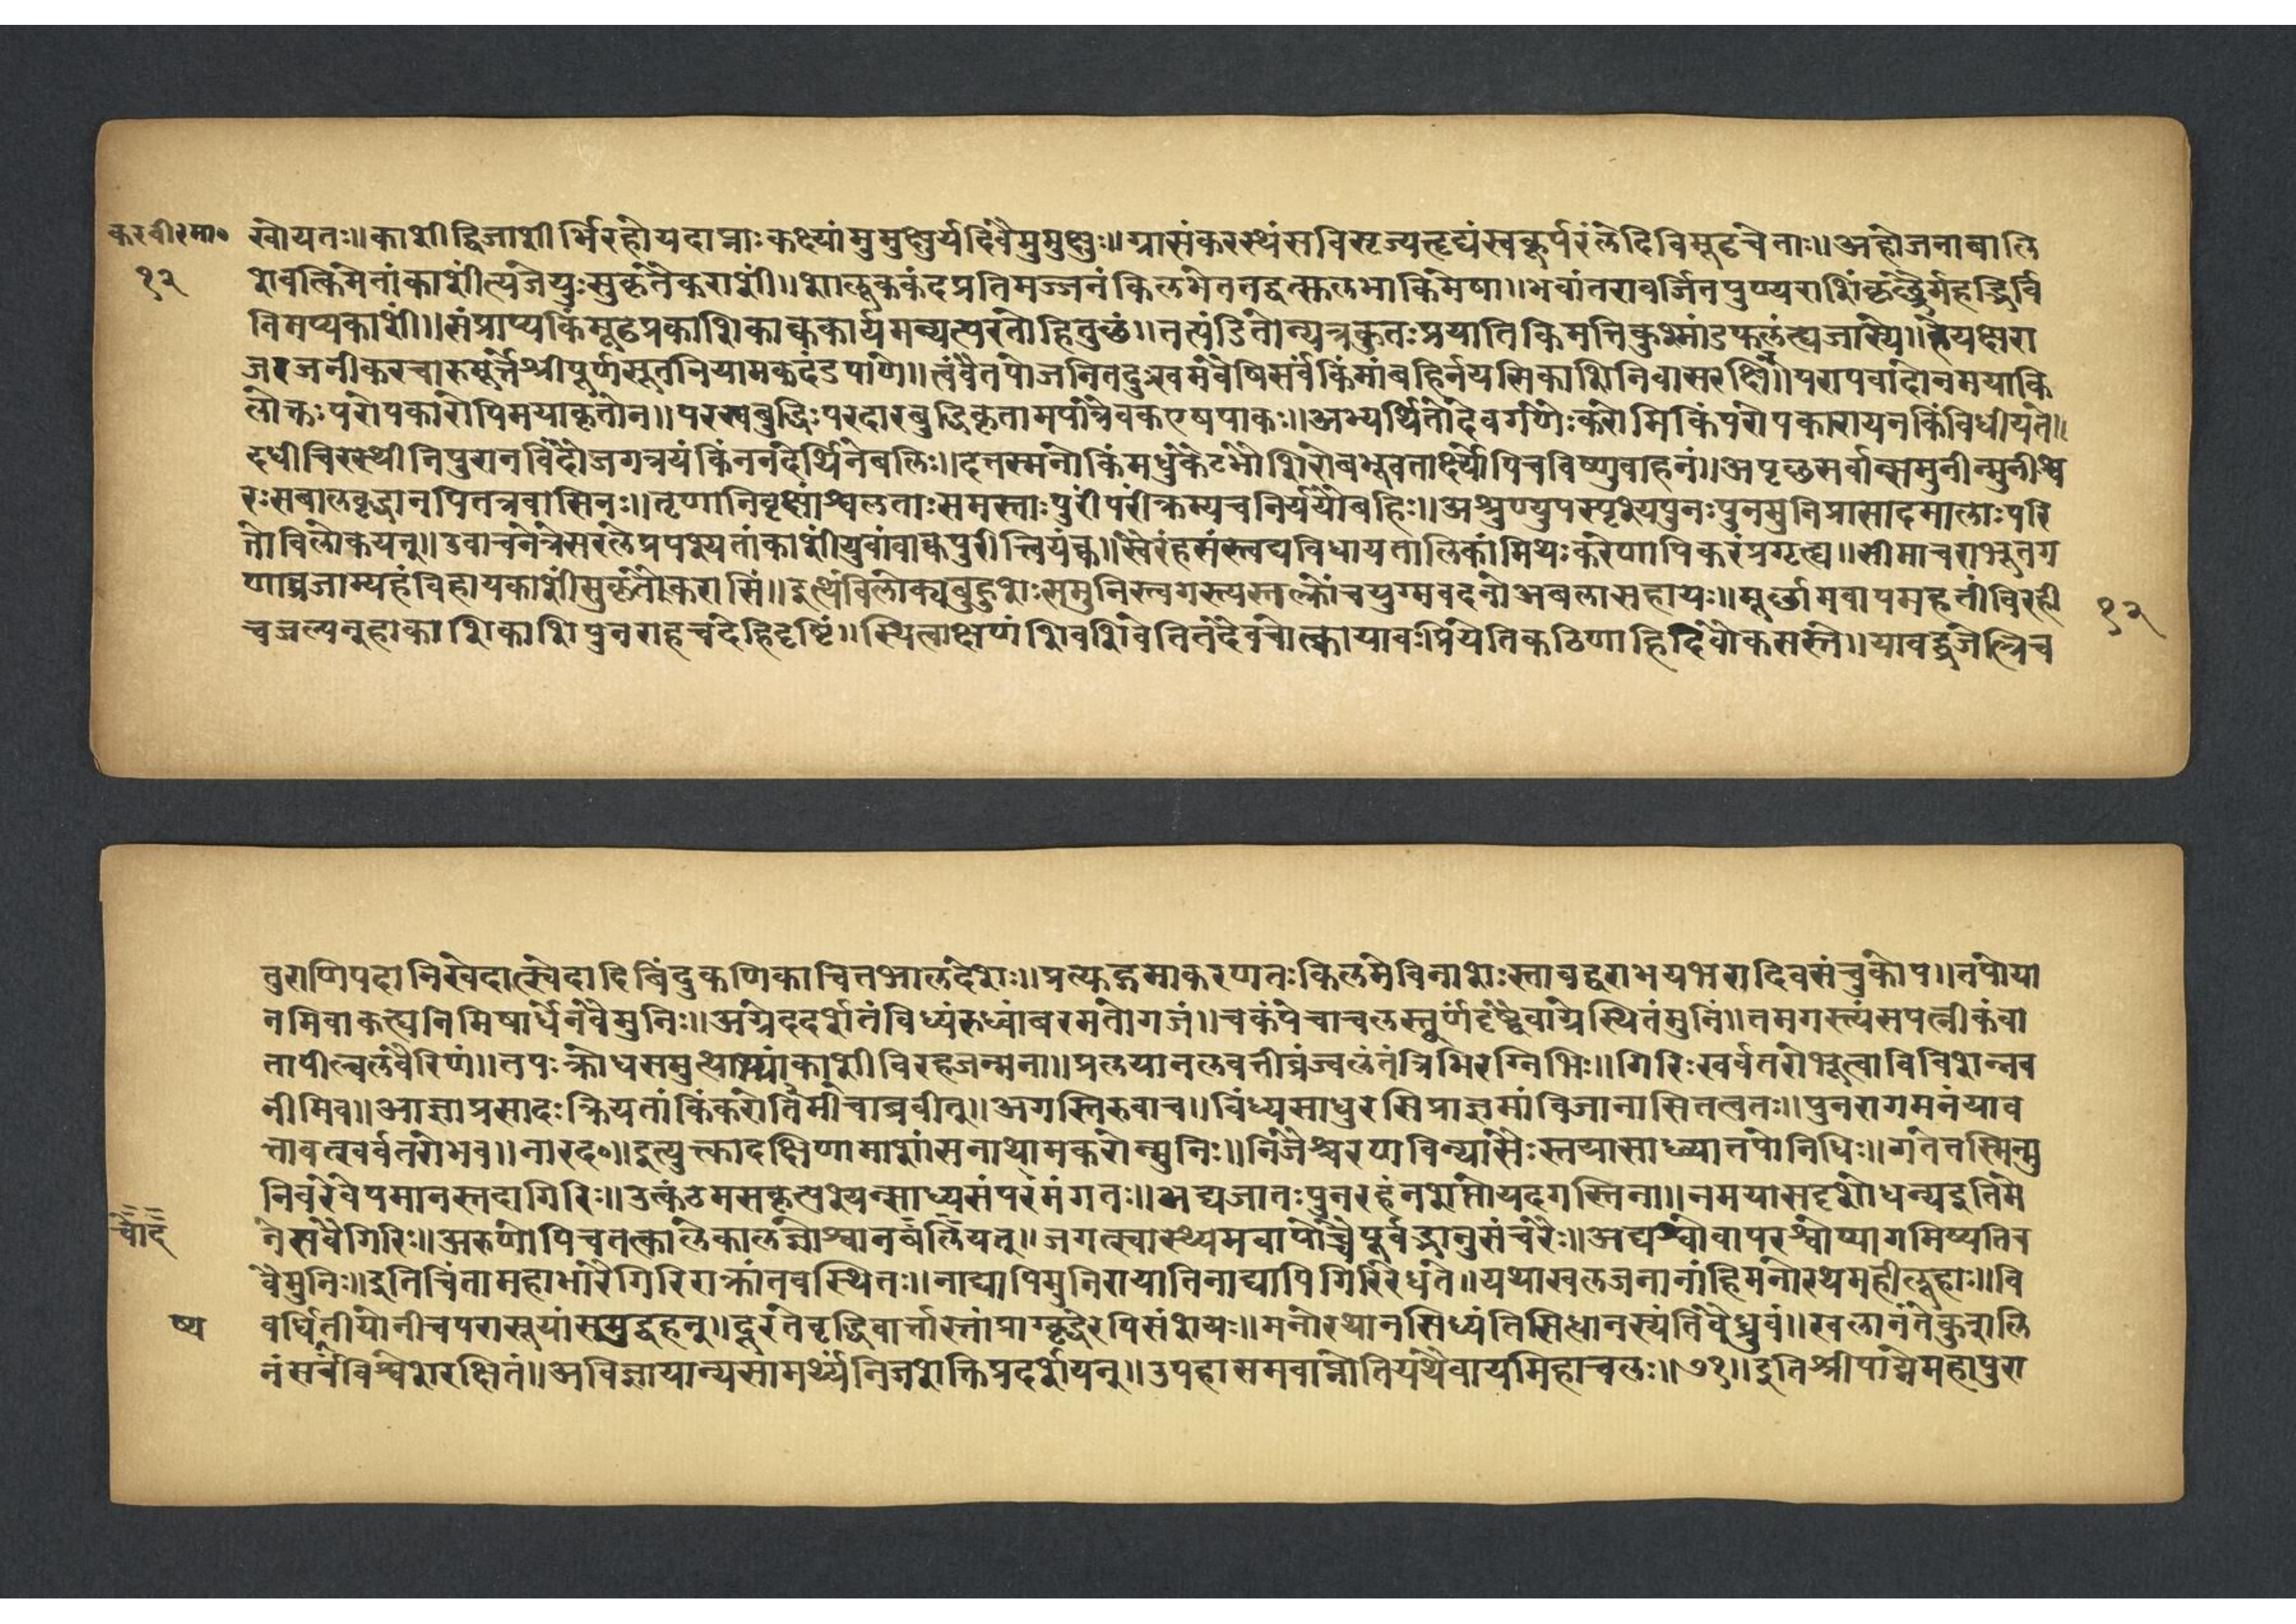 करवीरमा०
१२
खोयतः॥काशीद्विजाशीर्भिरहोयदाप्ताःकक्ष्यांमुमुक्षुर्यदिवैमुमुक्षुः॥ग्रासंकरस्थंसविसृज्यत्दृद्यंस्वकूर्परंलेदिविमूढचेताः॥अहोजनाबालि
शवत्किमेतांकाशींत्यजेयुःसुकृतैकराशीं॥शालूककंदप्रतिमज्जनंकिलभेततद्वत्सलभाकिमेषा॥भवांतरावर्जितपुण्यराशिंकृछ्रैर्महद्भिर्वि
तिमप्यकाशीं॥संप्राप्यकिंमूढप्रकाशिकाक्वकार्यमव्यत्परतोहितुछं॥तत्पंडितोन्यत्रकुतःप्रयातिकिमत्तिकुश्मांडफलंत्यजास्ये॥हेयक्षरा
जरजनीकरचारुमूर्त्तेश्रीपूर्णसूतनियामकदंडपाणे॥त्वंवैतपोजनितदुःखमवेषिसर्वंकिंमांबहिर्नयसिकाशिनिवासरक्षिन्॥परापवादोनमयाकि
लोक्तःपरोपकारोपिमयाकृतोन॥परस्वबुद्धिःपरदारबुद्धिकृतामपीत्रैवकएषपाकः॥अभ्यर्थितोदेवगणैःकरोमिकिंपरोपकारायनकिंविधीयते॥
दधीचिरस्थीनिपुरानविंदोजगत्रयंकिंननदेर्थिनेबलिः॥दत्तस्मनोकिंमधुकैटभौशिरोबभूवतार्क्ष्योपिचविष्णुवाहनं॥अपृछसर्वान्समुनीन्मुनीश्व
रःसबालवृद्धानपितत्रवासिनः॥तृणानिवृक्षांश्चलताःसमस्ताःपुरींपरीक्रम्यचनिर्ययौबहिः॥अश्रुण्युपस्पृश्यपुनःपुनमुनिप्रासादमालाःपरि
तोविलोकयन्॥उवाचनेत्रेसरलेप्रपश्यतांकाशींयुवांवाक्वपुरीत्वियंक्व॥स्वैरंहसंस्त्वद्यविधायतालिकांमिथःकरेणापिकरंप्रगृत्द्य॥सीमाचराभूतग
णाव्रजाम्यहंविहायकाशींसुकृतोकरासिं॥इत्थंविलोक्यबुहुशःसमुनिस्त्वगस्त्यस्तत्क्रौंचयुग्मवदनोअबलासहायः॥मूर्छामवापमहतींविरही
चजल्पन्हाकाशिकाशिपुनराहचदेहिदृष्टिं॥स्थित्वाक्षणंशिवशिवेतितंदेवचोत्क्वायावःप्रियेतिकठिणाहिदिवोकसस्ते॥यावद्व्रजेत्त्रिच
१२
तुराणिपदानिखेदात्स्वेदादिबिंदुकणिकाचितभालदेशः॥प्रत्यद्गमाकरणतःकिलमेविनाशःस्तावद्वराभयभरादिवसंचुकोप॥तपोया
नमिवाकत्द्यनिमिषार्धेनवैमुनिः॥अग्रेददर्शतंविंध्यंरुध्वांबरमतोगजं॥चकंपेचाचलस्तूर्णंदृष्ट्वैवाग्रेस्थितंमुनिं॥तमगस्त्यंसपत्नीकंवा
तापील्वलवैरिणं॥तपःक्रोधसमुत्थाभ्यांकाशीविरहजन्मना॥प्रलयानलवत्तीव्रंज्वलंतंत्रिभिरग्निभिः॥गिरिःखर्वतरोभूत्वाविविशन्नव
नीमिव॥आज्ञाप्रसादःक्रियतांकिंकरोर्तिमींचाब्रवीत्॥अगस्तिरुवाच॥विंध्यसाधुरेसिप्राज्ञमांविजानासितत्वतः॥पुनरागमनंयाव
त्तावत्खर्वतरोभव॥नारद०॥इत्युत्क्कादक्षिणामाशांसनाथामकरोन्मुनिः॥निजैश्चरणविन्यासैःस्तयासाध्व्यातपोनिधिः॥गतेतस्मिन्मु
निवरेवेपमानस्तदागिरिः॥उत्कंठमसकृत्पश्यन्साध्यसंपरमंगतः॥अद्यजातःपुनरहंनशप्तोयदगस्तिना॥नमयासदृशोधन्यइतिमे
चोद
नेसवैगिरिः॥अरुणोपिचतत्कालेकालज्ञोश्वानवर्लयत्॥जगत्स्वास्थ्यमवापोच्चैःपूर्वद्भानुसंचरैः॥अद्यश्वोवापरश्वोप्यागमिष्यतिव
वैमुनिः॥इतिचिंतामहाभारैगिरिराक्रांतवस्थितः॥नाद्यापिमुनिरायातिनाद्यापिगिरिरेधते॥यथाखलजनानांहिमनोरथमहीरुहाः॥वि
ष्य
वर्धितीयोनीचपरासूयांसमुद्वहन्॥दूरतेवृद्धिवार्त्तास्तांप्राग्वृद्धेरपिसंशयः॥मनोरथानसिध्यंतिसिद्धानस्यंतिवैध्रुवं॥खलानंतैकुत्रालि
नंसर्वंविश्वेशरक्षितं॥अविज्ञायान्यसामर्थ्यंनिजशक्तिप्रदर्शयन्॥उपहासमवाप्नोतियथैवायमिहाचलः॥७१॥इतिश्रीपाद्मेमहापुरा